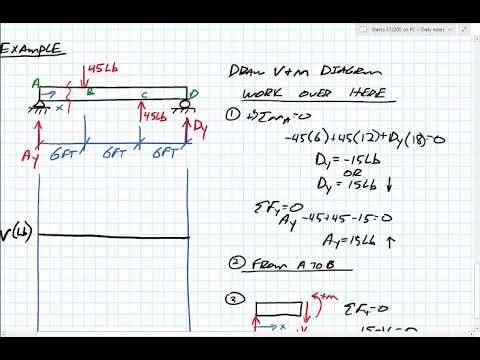 Sherrs ET2200 on PC – Daily notes
EXAMPLE
45Lb
A
B
C
D
x
45Lb
Ay
Dy
6FT
6FT
6FT
V(Lb)
DRAW V+M DIAGRAM
WORK OVER HERE
① +↺ΣMA=0
-45(6)+45(12)+Dy(18)=0
Dy = -15Lb
OR
Dy = 15Lb ↓
ΣFy=0
Ay -45+45-15=0
Ay = 15Lb ↑
② FROM A TO B
③
+M
x
V